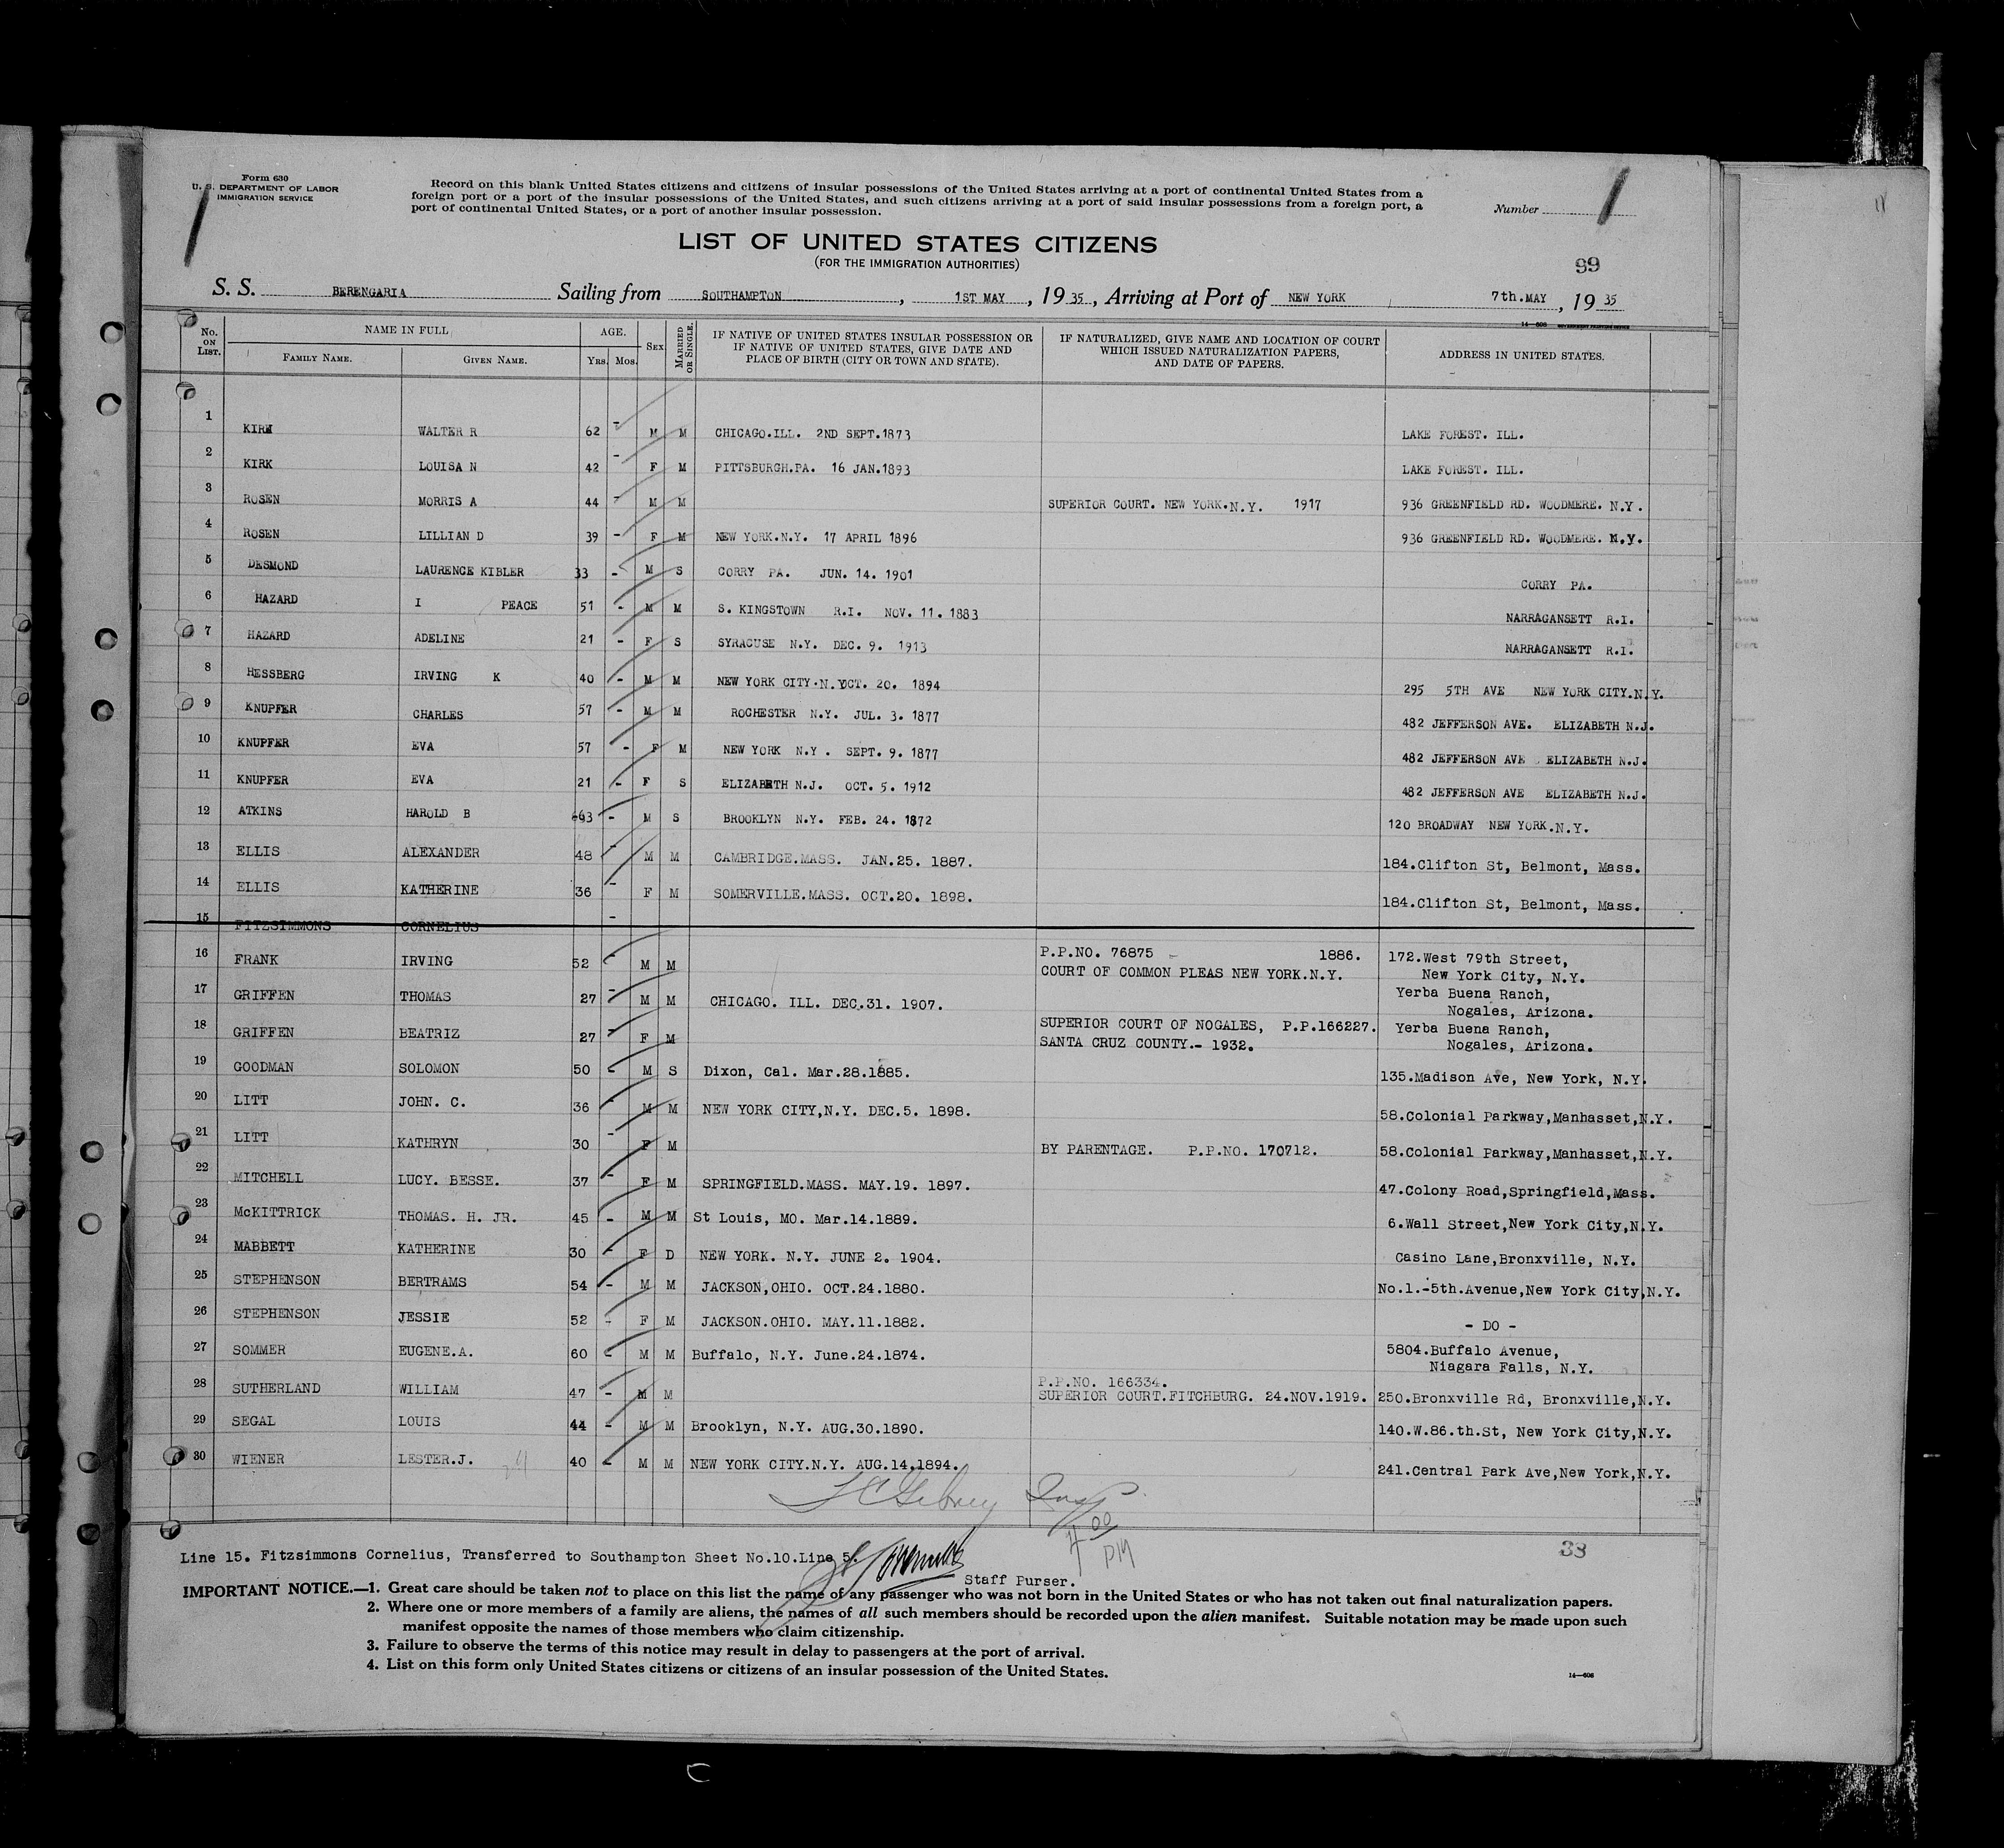 Form 630
U. S. DEPARTMENT OF LABOR
IMMIGRATION SERVICE
Record on this blank United States citizens and citizens of insular possessions of the United States arriving at a port of continental United States from a
foreign port or a port of the insular possessions of the United States, and such citizens arriving at a port of said insular possessions from a foreign port, a
port of continental United States, or a port of another insular possession.
Number
LIST OF UNITED STATES CITIZENS
(FOR THE IMMIGRATION AUTHORITIES)
99
S. S. BERENGARIA Sailing from SOUTHAMPTON, 1ST MAY, 1935, Arriving at Port of NEW YORK 7th.MAY, 1935
14—608 GOVERNMENT PRINTING OFFICE
No. ON LIST. NAME IN FULL FAMILY NAME. GIVEN NAME. AGE. Yrs. Mos. SEX MARRIED OR SINGLE. IF NATIVE OF UNITED STATES INSULAR POSSESSION OR IF NATIVE OF UNITED STATES, GIVE DATE AND PLACE OF BIRTH (CITY OR TOWN AND STATE). IF NATURALIZED, GIVE NAME AND LOCATION OF COURT WHICH ISSUED NATURALIZATION PAPERS, AND DATE OF PAPERS. ADDRESS IN UNITED STATES.
1 KIRK WALTER R 62 - M M CHICAGO.ILL. 2ND SEPT.1873 LAKE FOREST. ILL.
2 KIRK LOUISA N 42 - F M PITTSBURGH.PA. 16 JAN.1893 LAKE FOREST. ILL.
3 ROSEN MORRIS A 44 - M M SUPERIOR COURT. NEW YORK.N.Y. 1917 936 GREENFIELD RD. WOODMERE. N.Y.
4 ROSEN LILLIAN D 39 - F M NEW YORK.N.Y. 17 APRIL 1896 936 GREENFIELD RD. WOODMERE. N.Y.
5 DESMOND LAURENCE KIBLER 33 - M S CORRY PA. JUN. 14. 1901 CORRY PA.
6 HAZARD I PEACE 51 - M M S. KINGSTOWN R.I. NOV. 11. 1883 NARRAGANSETT R.I.
7 HAZARD ADELINE 21 - F S SYRACUSE N.Y. DEC. 9. 1913 NARRAGANSETT R.I.
8 HESSBERG IRVING K 40 - M M NEW YORK CITY.N.Y.OCT. 20. 1894 295 5TH AVE NEW YORK CITY.N.Y.
9 KNUPFER CHARLES 57 - M M ROCHESTER N.Y. JUL. 3. 1877 482 JEFFERSON AVE. ELIZABETH N.J.
10 KNUPFER EVA 57 - F M NEW YORK N.Y. SEPT. 9. 1877 482 JEFFERSON AVE ELIZABETH N.J.
11 KNUPFER EVA 21 - F S ELIZABETH N.J. OCT. 5. 1912 482 JEFFERSON AVE ELIZABETH N.J.
12 ATKINS HAROLD B 63 - M S BROOKLYN N.Y. FEB. 24. 1872 120 BROADWAY NEW YORK.N.Y.
13 ELLIS ALEXANDER 48 - M M CAMBRIDGE.MASS. JAN.25. 1887. 184.Clifton St, Belmont, Mass.
14 ELLIS KATHERINE 36 - F M SOMERVILLE.MASS. OCT.20. 1898. 184.Clifton St, Belmont, Mass.
15 FITZSIMMONS CORNELIUS -
16 FRANK IRVING 52 - M M P.P.NO. 76875 - 1886. COURT OF COMMON PLEAS NEW YORK.N.Y. 172.West 79th Street, New York City, N.Y.
17 GRIFFEN THOMAS 27 - M M CHICAGO. ILL. DEC.31. 1907. Yerba Buena Ranch, Nogales, Arizona.
18 GRIFFEN BEATRIZ 27 - F M SUPERIOR COURT OF NOGALES, P.P.166227. SANTA CRUZ COUNTY.- 1932. Yerba Buena Ranch, Nogales, Arizona.
19 GOODMAN SOLOMON 50 - M S Dixon, Cal. Mar.28.1885. 135.Madison Ave, New York, N.Y.
20 LITT JOHN. C. 36 - M M NEW YORK CITY,N.Y. DEC.5. 1898. 58.Colonial Parkway,Manhasset,N.Y.
21 LITT KATHRYN 30 - F M BY PARENTAGE. P.P.NO. 170712. 58.Colonial Parkway,Manhasset,N.Y.
22 MITCHELL LUCY. BESSE. 37 - F M SPRINGFIELD.MASS. MAY.19. 1897. 47.Colony Road,Springfield,Mass.
23 McKITTRICK THOMAS. H. JR. 45 - M M St Louis, MO. Mar.14.1889. 6.Wall Street,New York City,N.Y.
24 MABBETT KATHERINE 30 - F D NEW YORK. N.Y. JUNE 2. 1904. Casino Lane,Bronxville, N.Y.
25 STEPHENSON BERTRAMS 54 - M M JACKSON,OHIO. OCT.24.1880. No.1.-5th.Avenue,New York City,N.Y.
26 STEPHENSON JESSIE 52 - F M JACKSON.OHIO. MAY.11.1882. - DO -
27 SOMMER EUGENE.A. 60 - M M Buffalo, N.Y. June.24.1874. 5804.Buffalo Avenue, Niagara Falls, N.Y.
28 SUTHERLAND WILLIAM 47 - M M P.P.NO. 166334. SUPERIOR COURT.FITCHBURG. 24.NOV.1919. 250.Bronxville Rd, Bronxville,N.Y.
29 SEGAL LOUIS 44 - M M Brooklyn, N.Y. AUG.30.1890. 140.W.86.th.St, New York City,N.Y.
30 WIENER LESTER.J. 40 - M M NEW YORK CITY.N.Y. AUG.14.1894. 241.Central Park Ave,New York,N.Y.
Insp
4 00 PM
33
Line 15. Fitzsimmons Cornelius, Transferred to Southampton Sheet No.10.Line 5.
Staff Purser.
IMPORTANT NOTICE.—1. Great care should be taken not to place on this list the name of any passenger who was not born in the United States or who has not taken out final naturalization papers.
2. Where one or more members of a family are aliens, the names of all such members should be recorded upon the alien manifest. Suitable notation may be made upon such
manifest opposite the names of those members who claim citizenship.
3. Failure to observe the terms of this notice may result in delay to passengers at the port of arrival.
4. List on this form only United States citizens or citizens of an insular possession of the United States.
14—608